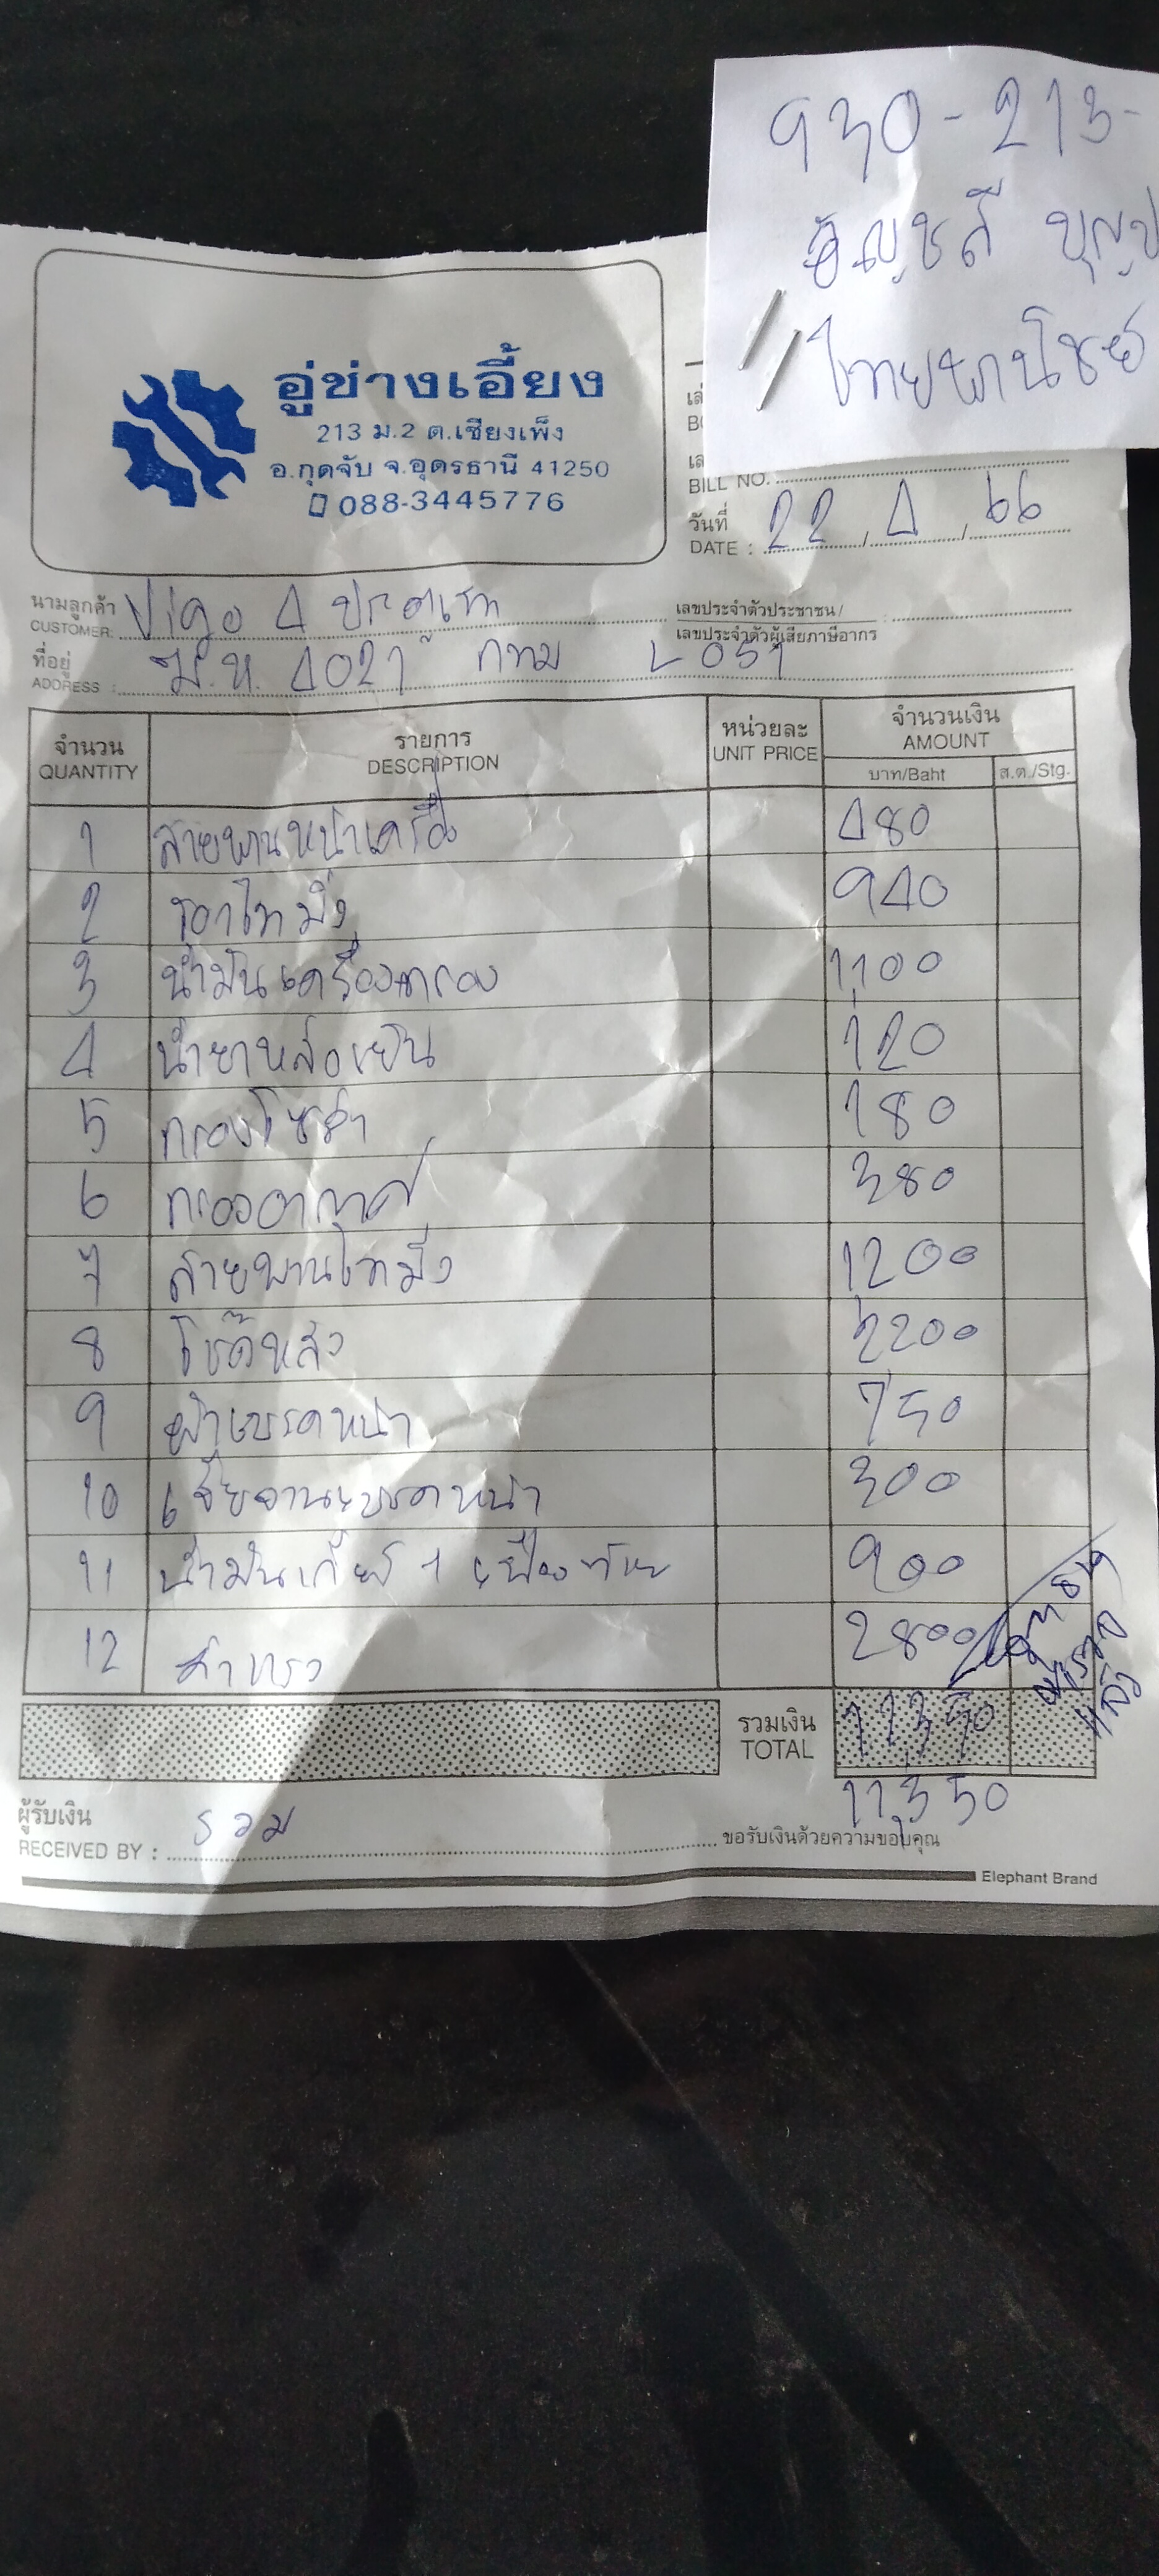 930-213-
อัญชลี บุญป
ไทยพานิชย์
อู่ช่างเอี้ยง
213 ม.2 ต.เชียงเพ็ง
อ.กุดจับ จ.อุดรธานี 41250
088-3445776
BILL NO.
วันที่ 22 / 4 / 66
DATE :
นามลูกค้า Vigo 4 ประตู
CUSTOMER:
เลขประจำตัวประชาชน/
เลขประจำตัวผู้เสียภาษีอากร
ที่อยู่ 4021 กทม
ADDRESS :
จำนวน รายการ หน่วยละ จำนวนเงิน
QUANTITY DESCRIPTION UNIT PRICE AMOUNT
บาท/Baht ส.ต./Stg.
1 สายพานหน้าเครื่อง 480
2 รอกไทมิ่ง 940
3 น้ำมันเครื่อง+กรอง 1,100
4 น้ำยาหล่อเย็น 120
5 กรองโซล่า 180
6 กรองอากาศ 380
7 สายพานไทมิ่ง 1,200
8 โช๊คหลัง 2200
9 ผ้าเบรคหน้า 750
10 เจียจานเบรคหน้า 300
11 น้ำมันเกียร์+เฟืองท้าย 900
12 ค่าแรง 2800
รวมเงิน 11350
TOTAL
11,350
ผู้รับเงิน รวม
RECEIVED BY : ขอรับเงินด้วยความขอบคุณ
Elephant Brand